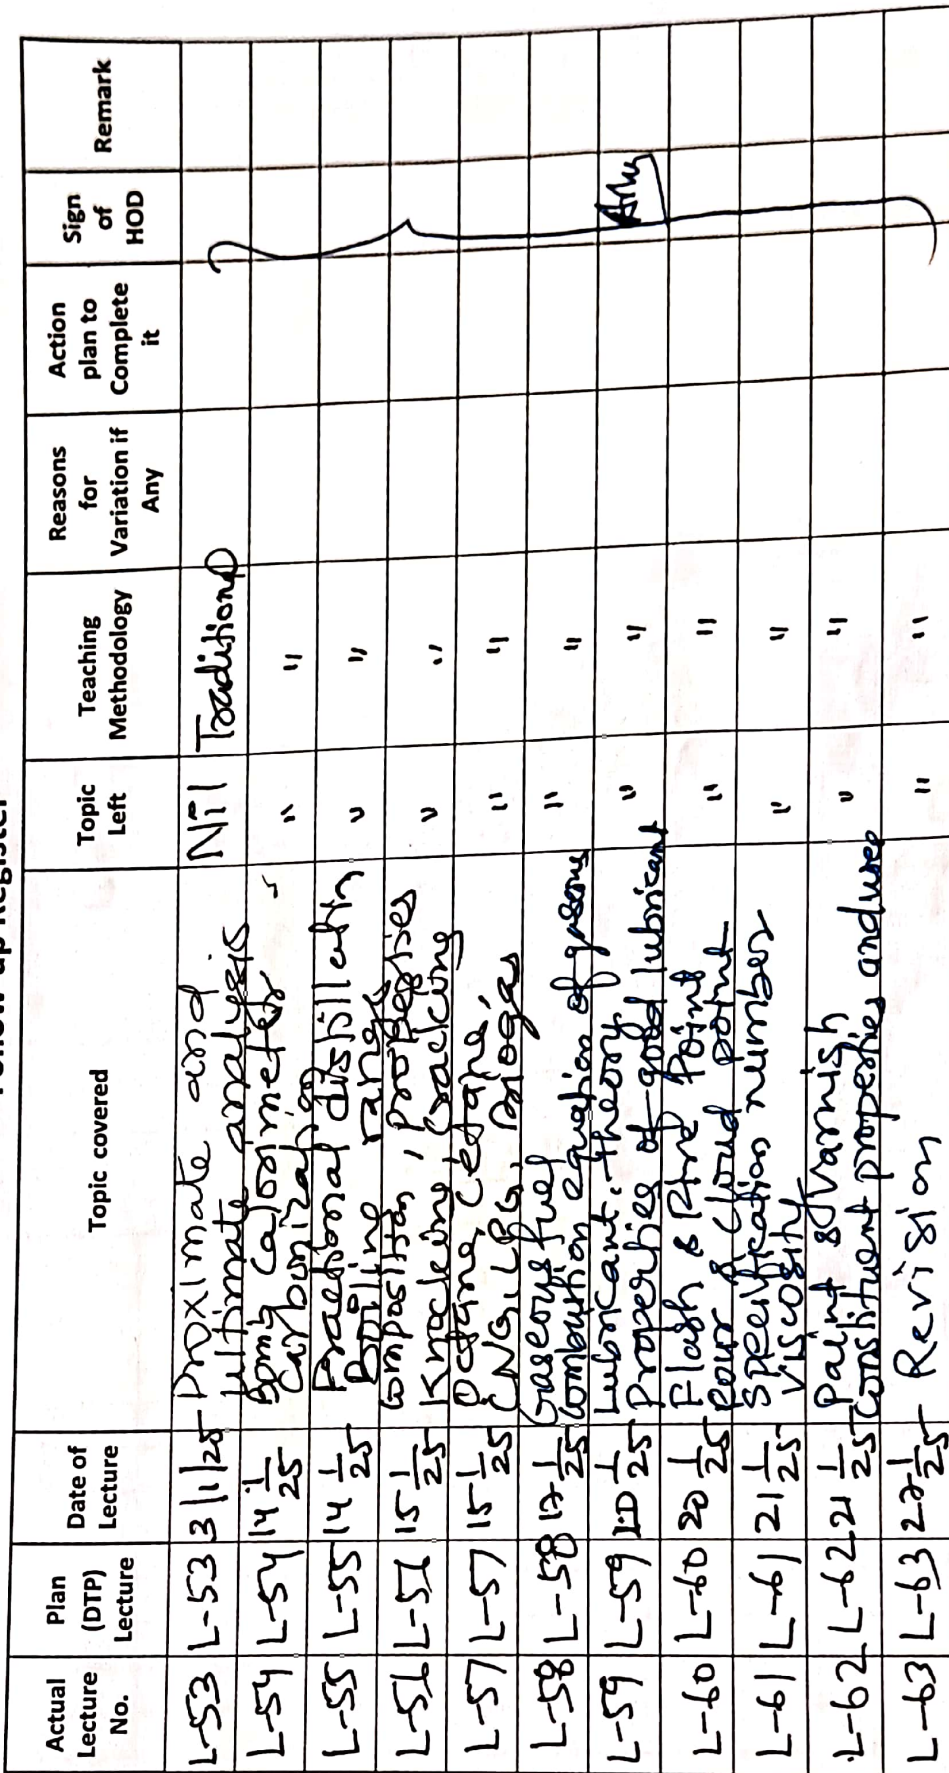 Follow up Register
Actual Lecture No. Plan (DTP) Lecture Date of Lecture Topic covered Topic Left Teaching Methodology Reasons for Variation if Any Action plan to Complete it Sign of HOD Remark
L-53 L-53 3/1/25 Proximate and Nil Traditional
ultimate analysis
L-54 L-54 14 1/25 Bomb calorimeter " "
Carbonization
L-55 L-55 14 1/25 Fractional distillation " "
Boiling range
L-56 L-56 15 1/25 Composition, properties " "
Knocking, Cracking
L-57 L-57 15 1/25 Octane, Cetane, " "
CNG, LPG, Biogas
L-58 L-58 17 1/25 Gaseous fuel " "
Combustion equation of gaseous
L-59 L-59 1/25 Lubricant: theory " "
Properties of good lubricant
L-60 L-60 20 1/25 Flash & Fire Point " "
Pour & Cloud point
L-61 L-61 21 1/25 Specification number " "
Viscosity
L-62 L-62 21 1/25 Paint & Varnish " "
Constituent properties and uses
L-63 L-63 27 1/25 Revision " "